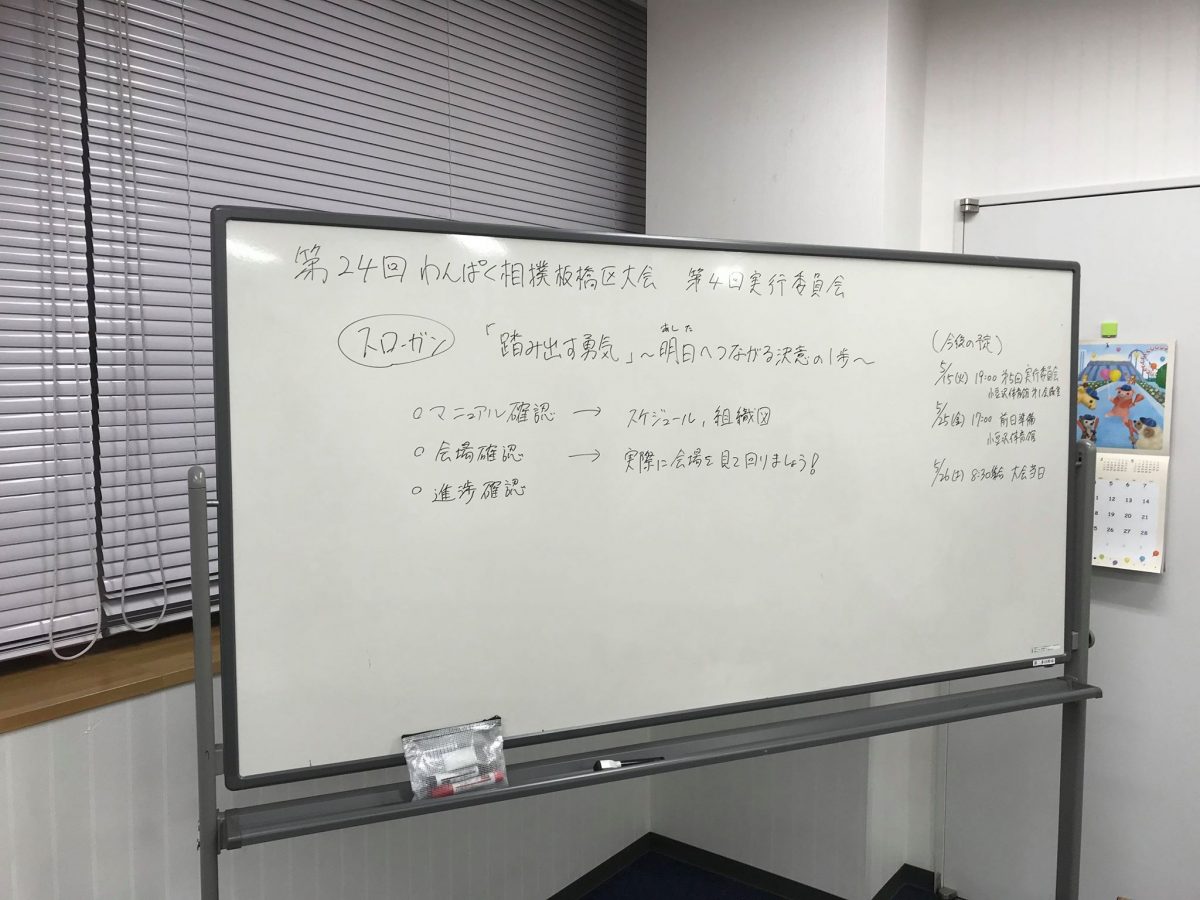 第24回 わんぱく相撲板橋区大会 第4回実行委員会
スローガン
あした
「踏み出す勇気」～明日へつながる決意の1歩～
○マニュアル確認 → スケジュール, 組織図
○会場確認 → 実際に会場を見て回りましょう!
○進渉確認
(今後の予定)
5/15(火) 19:00 第5回実行委員会
小豆沢体育館 第1会議室
5/25(金) 17:00 前日準備
小豆沢体育館
5/26(土) 8:30 大会当日
5 6 7
12 13 14
18 19 20 21
25 26 27 28